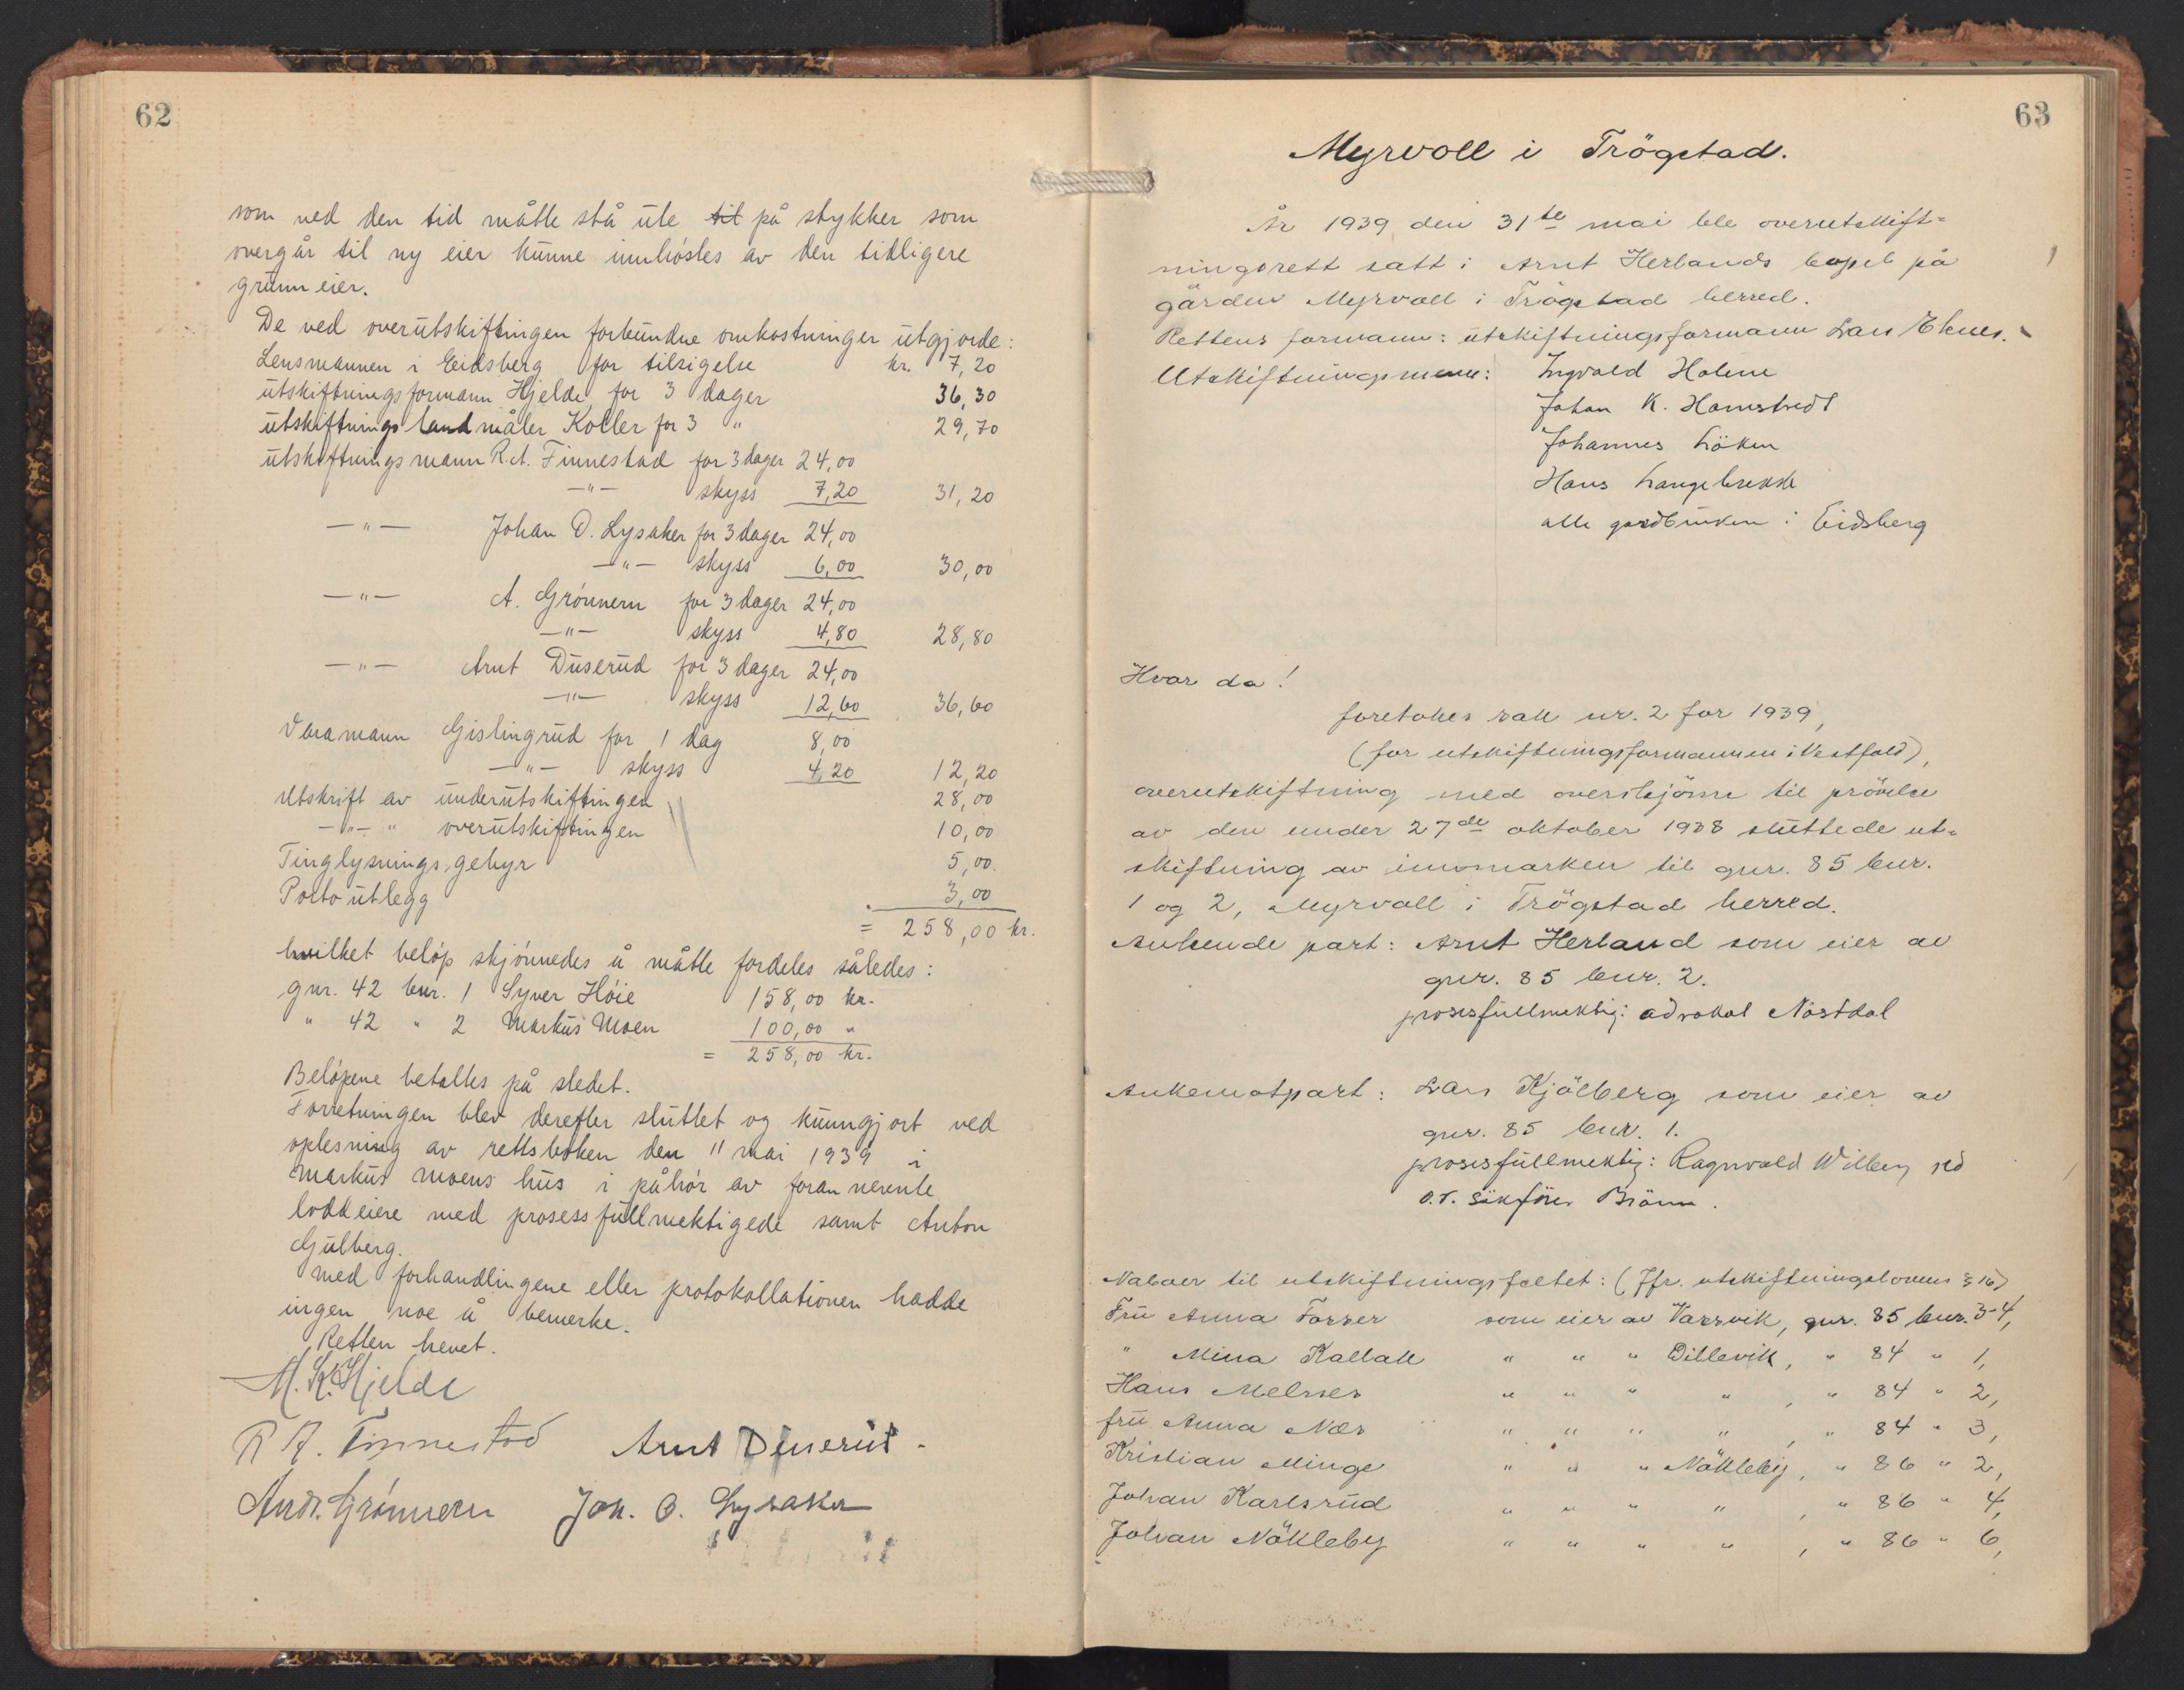 62
som ved den tid måtte stå ute til på stykker som
overgår til ny eier kunne innhøstes av den tidligere
grunneier.
De ved overutskiftingen forbundne omkostninger utgjorde:
Lensmannen i Eidsberg for tilsigelse kr. 7,20
utskiftningsformann Hjelde for 3 dager 36,30
utskiftningslandmåler Koller for 3 " 29,70
utskiftningsmann R.A. Finnestad for 3 dager 24,00
—"— skyss 7,20 31,20
—"— Johan O. Lysaker for 3 dager 24,00
—"— skyss 6,00 30,00
—"— A. Grönnern for 3 dager 24,00
—"— skyss 4,80 28,80
—"— Arnt Duserud for 3 dager 24,00
—"— skyss 12,60 36,60
Varamann Gislingrud for 1 dag 8,00
—"— skyss 4,20 12,20
Utskrift av underutskiftingen 28,00
—"— " overutskiftingen 10,00
Tinglysnings gebyr 5,00
Porto utlegg 3,00
= 258,00 kr.
hvilket beløp skjønnedes å måtte fordeles således:
gnr. 42 bnr. 1 Syver Høie 158,00 kr.
" 42 " 2 Markus Moen 100,00 "
= 258,00 kr.
Beløpene betaltes på stedet.
Forretningen blev derefter sluttet og kunngjort ved
oplesning av rettsboken den 11 mai 1939 i
Markus Moens hus i påhør av foran nevente
loddeiere med prosessfullmektigede samt Anton
Gulberg.
Med forhandlingene eller protokollationen hadde
ingen noe å bemerke.
Retten hevet.
M. K. Hjelde
R A. Finnestad Arnt Duserud.
Andr. Grønnern Joh. O. Lysaker
63
Myrvoll i Trögstad.
År 1939 den 31te mai ble overutskift=
ningsrett satt i Arnt Herlands bopel på
gården Myrvoll i Trögstad herred.
Rettens formann: utskiftningsformann Lars Eknes.
Utskiftningsmenn: Ingvald Holene
Johan K. Hamstvedt
Johannes Löken
Hans Langebrekke
alle gardbruker i Eidsberg
Hvor da!
foretokes sak nr. 2 for 1939,
(for utskiftningsformannen i Vestfold),
overutskiftning med overskjönn til prövelse
av den under 27de oktober 1938 sluttede ut=
skiftning av innmarken til gnr. 85 bnr.
1 og 2, Myrvoll i Trögstad herred.
Ankende part: Arnt Herland som eier av
gnr. 85 bnr. 2.
prosesfullmektig: advokat Nöstdal
Ankemotpart: Lars Kjölberg som eier av
gnr. 85 bnr. 1.
prosesfullmektig: Ragnvald Wilberg ved
o.r. sakförer Brönn.
Naboer til utskiftningsfeltet: (Jfr. utskiftningslovens § 16)
Fru Anna Forser som eier av Varsvik, gnr. 85 bnr. 3-4,
" Mina Kallak " " " Dillevik, " 84 " 1,
Hans Melsnes " " " " , " 84 " 2,
fru Anna Næs " " " " , " 84 " 3,
Kristian Minge " " " Nökleby, " 86 " 2,
Johan Karlsrud " " " " , " 86 " 4,
Johan Nökleby " " " " , " 86 " 6,